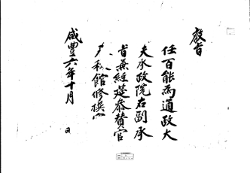 教旨
任百能爲通政大
夫承政院右副承
旨兼經筵參贊官
春秋館修撰官
咸豐六年十月 日